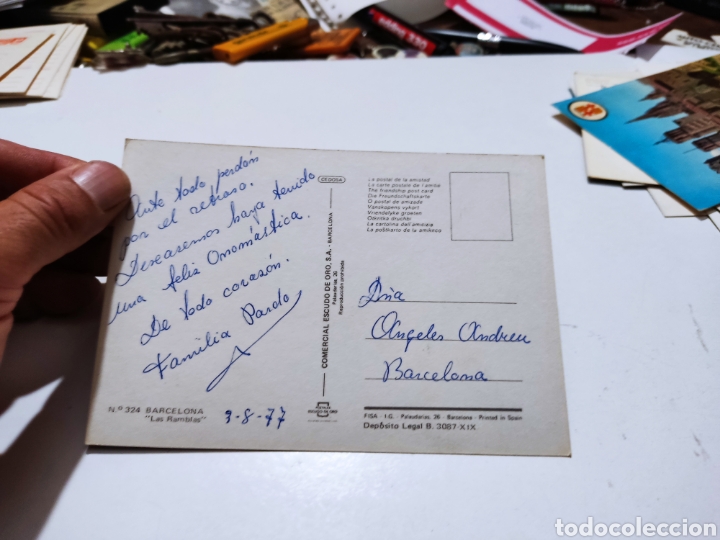 Ante todo perdón
por el retraso.
Deseasemos haya tenido
una feliz Onomástica.
De todo corazón.
Familia Pardo
Nº 324 BARCELONA
"Las Ramblas"
3-8-77
COMERCIAL ESCUDO DE ORO, S.A. - BARCELONA
Palaudarias, 26
Reproducción prohibida
La postal de la amistad
La carte postale de l'amitié
The friendship post card
Die Freundschaftskarte
O postal da amizade
Vanskapens vykort
Vriendelijke groeten
La cartolina dell'amicizia
Dña
Angeles Andreu
Barcelona
FISA - I.G. Palaudarias, 26 - Barcelona - Printed in Spain
Depósito Legal B. 3087-XIX
todocoleccion